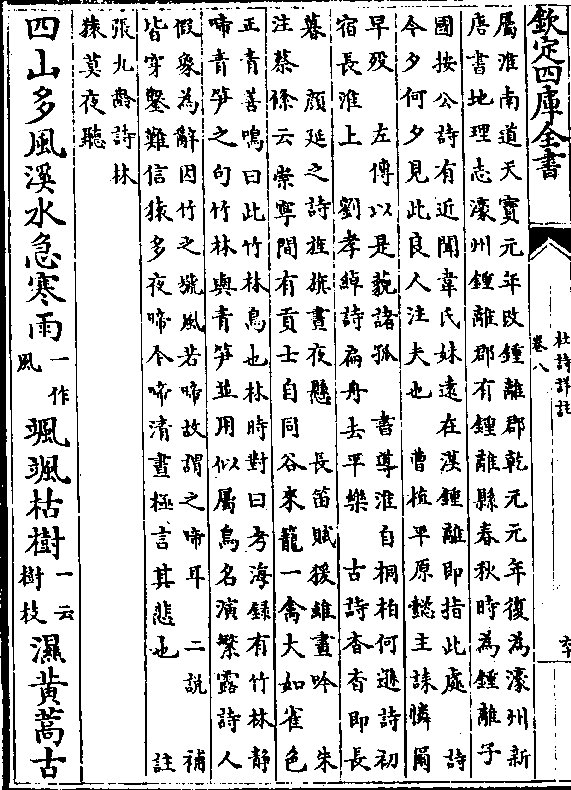 欽定四庫全書
杜詩詳註
卷八
屬淮南道天寶元年改鍾離郡乾元元年復為濠州新
唐書地理志濠州鍾離郡有鍾離縣春秋時為鍾離子
國按公詩有近聞韋氏妹遠在漢鍾離即指此處 詩
今夕何夕見此良人注夫也 曹植平原懿主誄憐爾
早殁 左傳以是藐諸孤 書導淮自桐柏何遜詩初
宿長淮上 劉孝綽詩扁舟去平樂 古詩杳杳即長
暮 顔延之詩旌旐晝夜懸 長笛賦猨維晝吟 朱
注蔡絛云崇寧間有貢士自同谷來籠一禽大如雀色
正青善鳴曰此竹林鳥也林時對曰考海録有竹林靜
啼青笋之句竹林與青笋並用似屬鳥名演繁露詩人
假象為辭因竹之號風若啼故謂之啼耳 二說 補
皆穿鑿難信猿多夜啼今啼清晝極言其悲也 註
張九齡詩林
猿莫夜聽
四山多風溪水急寒雨一作風颯颯枯樹一云樹枝濕黄蒿古